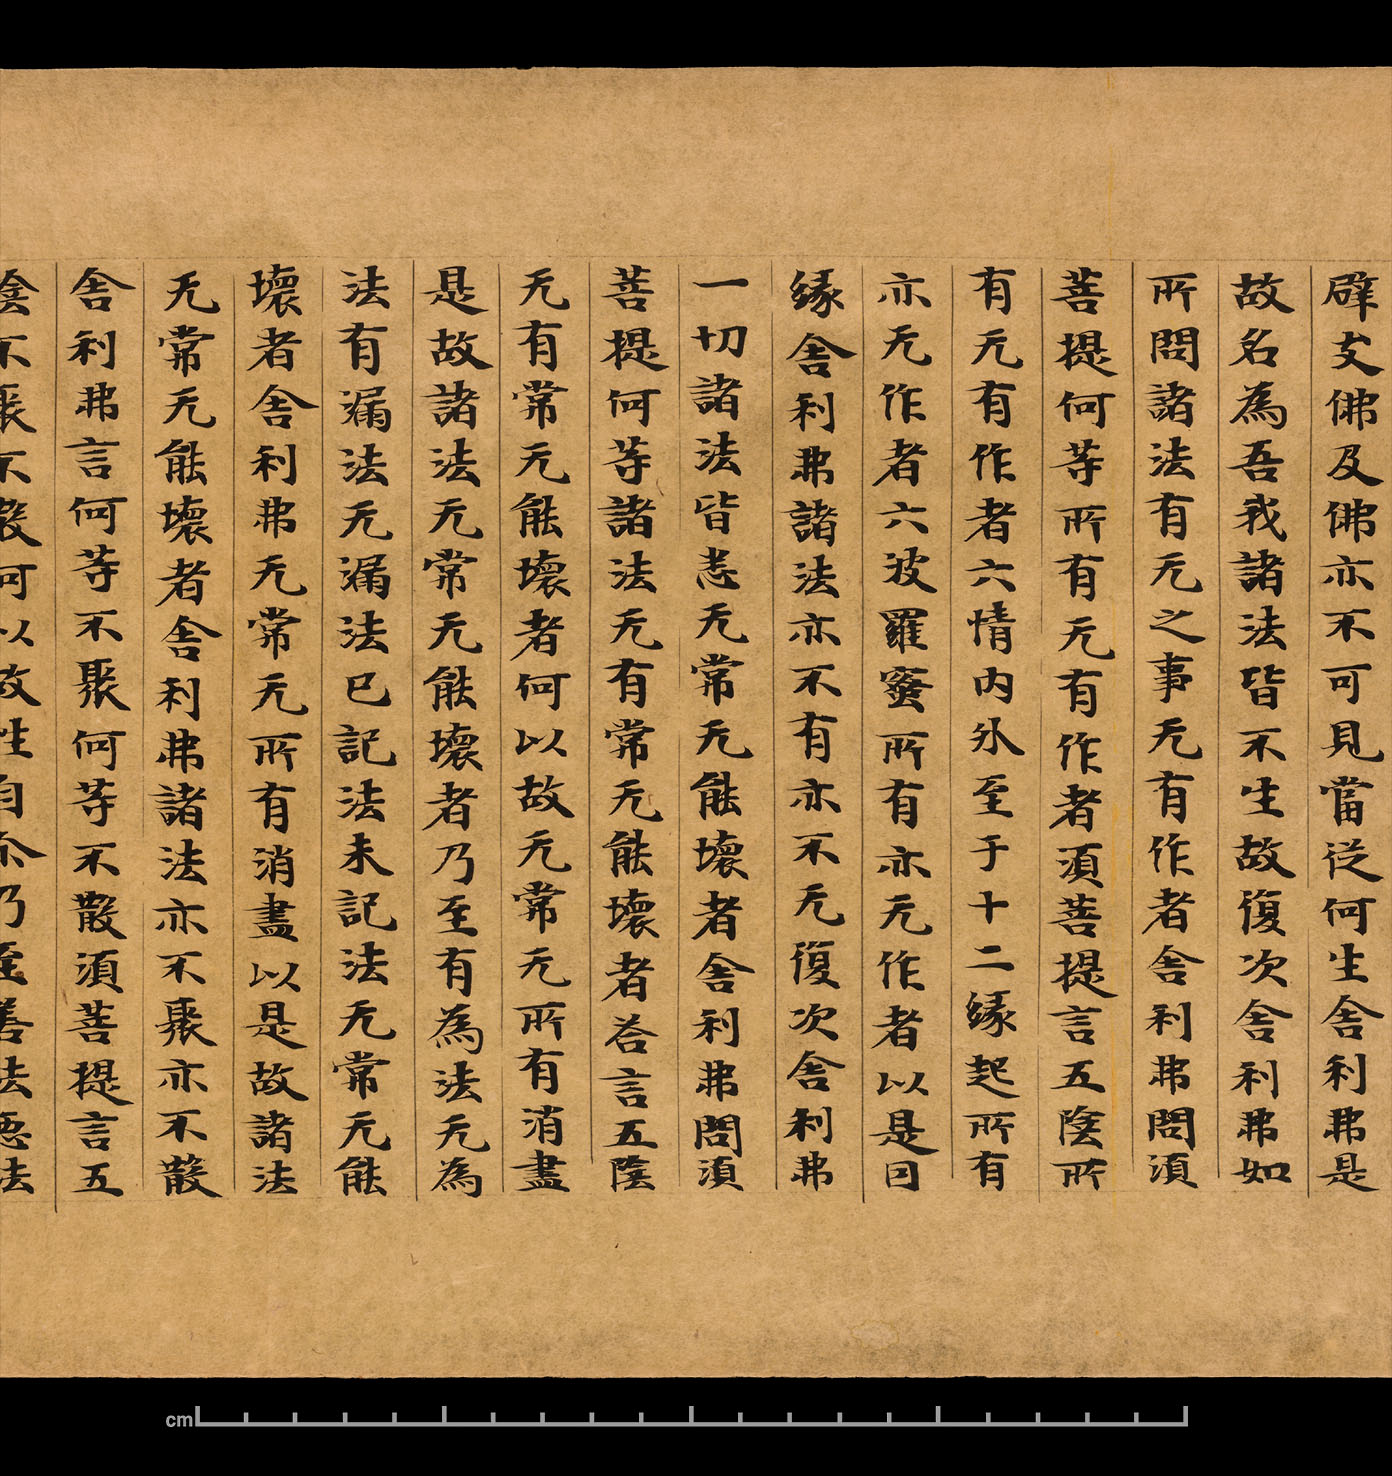 辟支佛及佛亦不可見當從何生舍利弗是
故名為吾我諸法皆不生故復次舍利弗如
所問諸法有无之事无有作者舍利弗問須
菩提何等所有无有作者須菩提言五陰所
有无有作者六情内外至于十二緣起所有
亦无作者六波羅蜜所有亦无作者以是因
緣舍利弗諸法亦不有亦不无復次舍利弗
一切諸法皆悉无常无能壞者舍利弗問須
菩提何等諸法无有常无能壞者答言五陰
无有常无能壞者何以故无常无所有消盡
是故諸法无常无能壞者乃至有為法无為
法有漏法无漏法已記法未記法无常无能
壞者舍利弗无常无所有消盡以是故諸法
无常无能壞者舍利弗諸法亦不聚亦不散
舍利弗言何等不聚何等不散須菩提言五
陰不聚不散何以故性自尒乃至善法惡法
cm